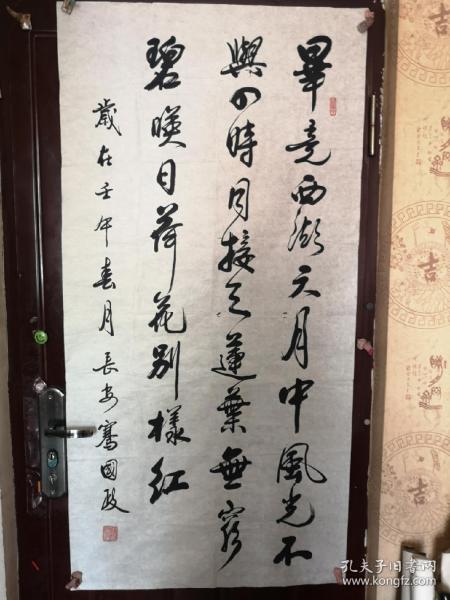 畢竟西湖六月中風光不
與四時同接天蓮葉無窮
碧暎日荷花别樣紅
歲在壬午春月長安騫國政
吉
吉
吉
孔夫子旧书网
www.kongfz.com